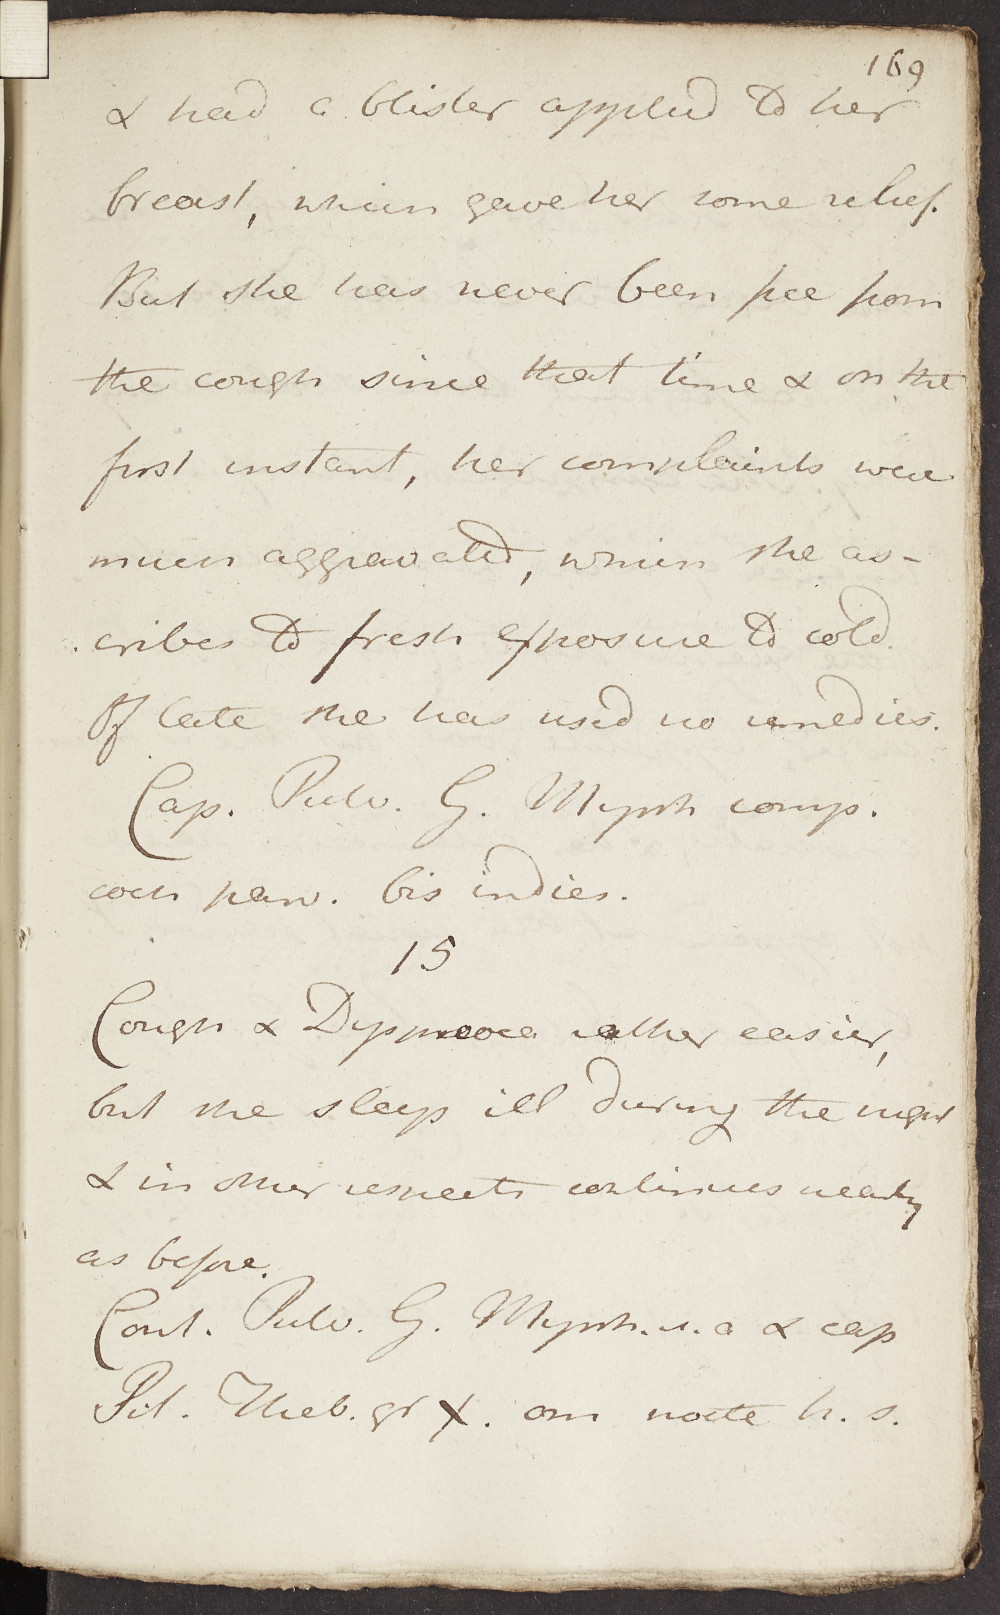 169
& had a blister applied to her
breast, which gave her some relief.
But she has never been free from
the cough since that time & on the
first instant, her complaints were
much aggravated, which she as-
cribes to fresh exposure to cold.
Of late she has used no remedies.
Cap. Pulv. G. Myrrh comp.
coch parv. bis indies.
15
Cough & Dyspnoea rather easier,
but she sleeps ill during the night
& in other respects continues nearly
as before.
Cont. Pulv. G. Myrrh. u. a & cap
Pil. Theb. gr X. om nocte h. s.